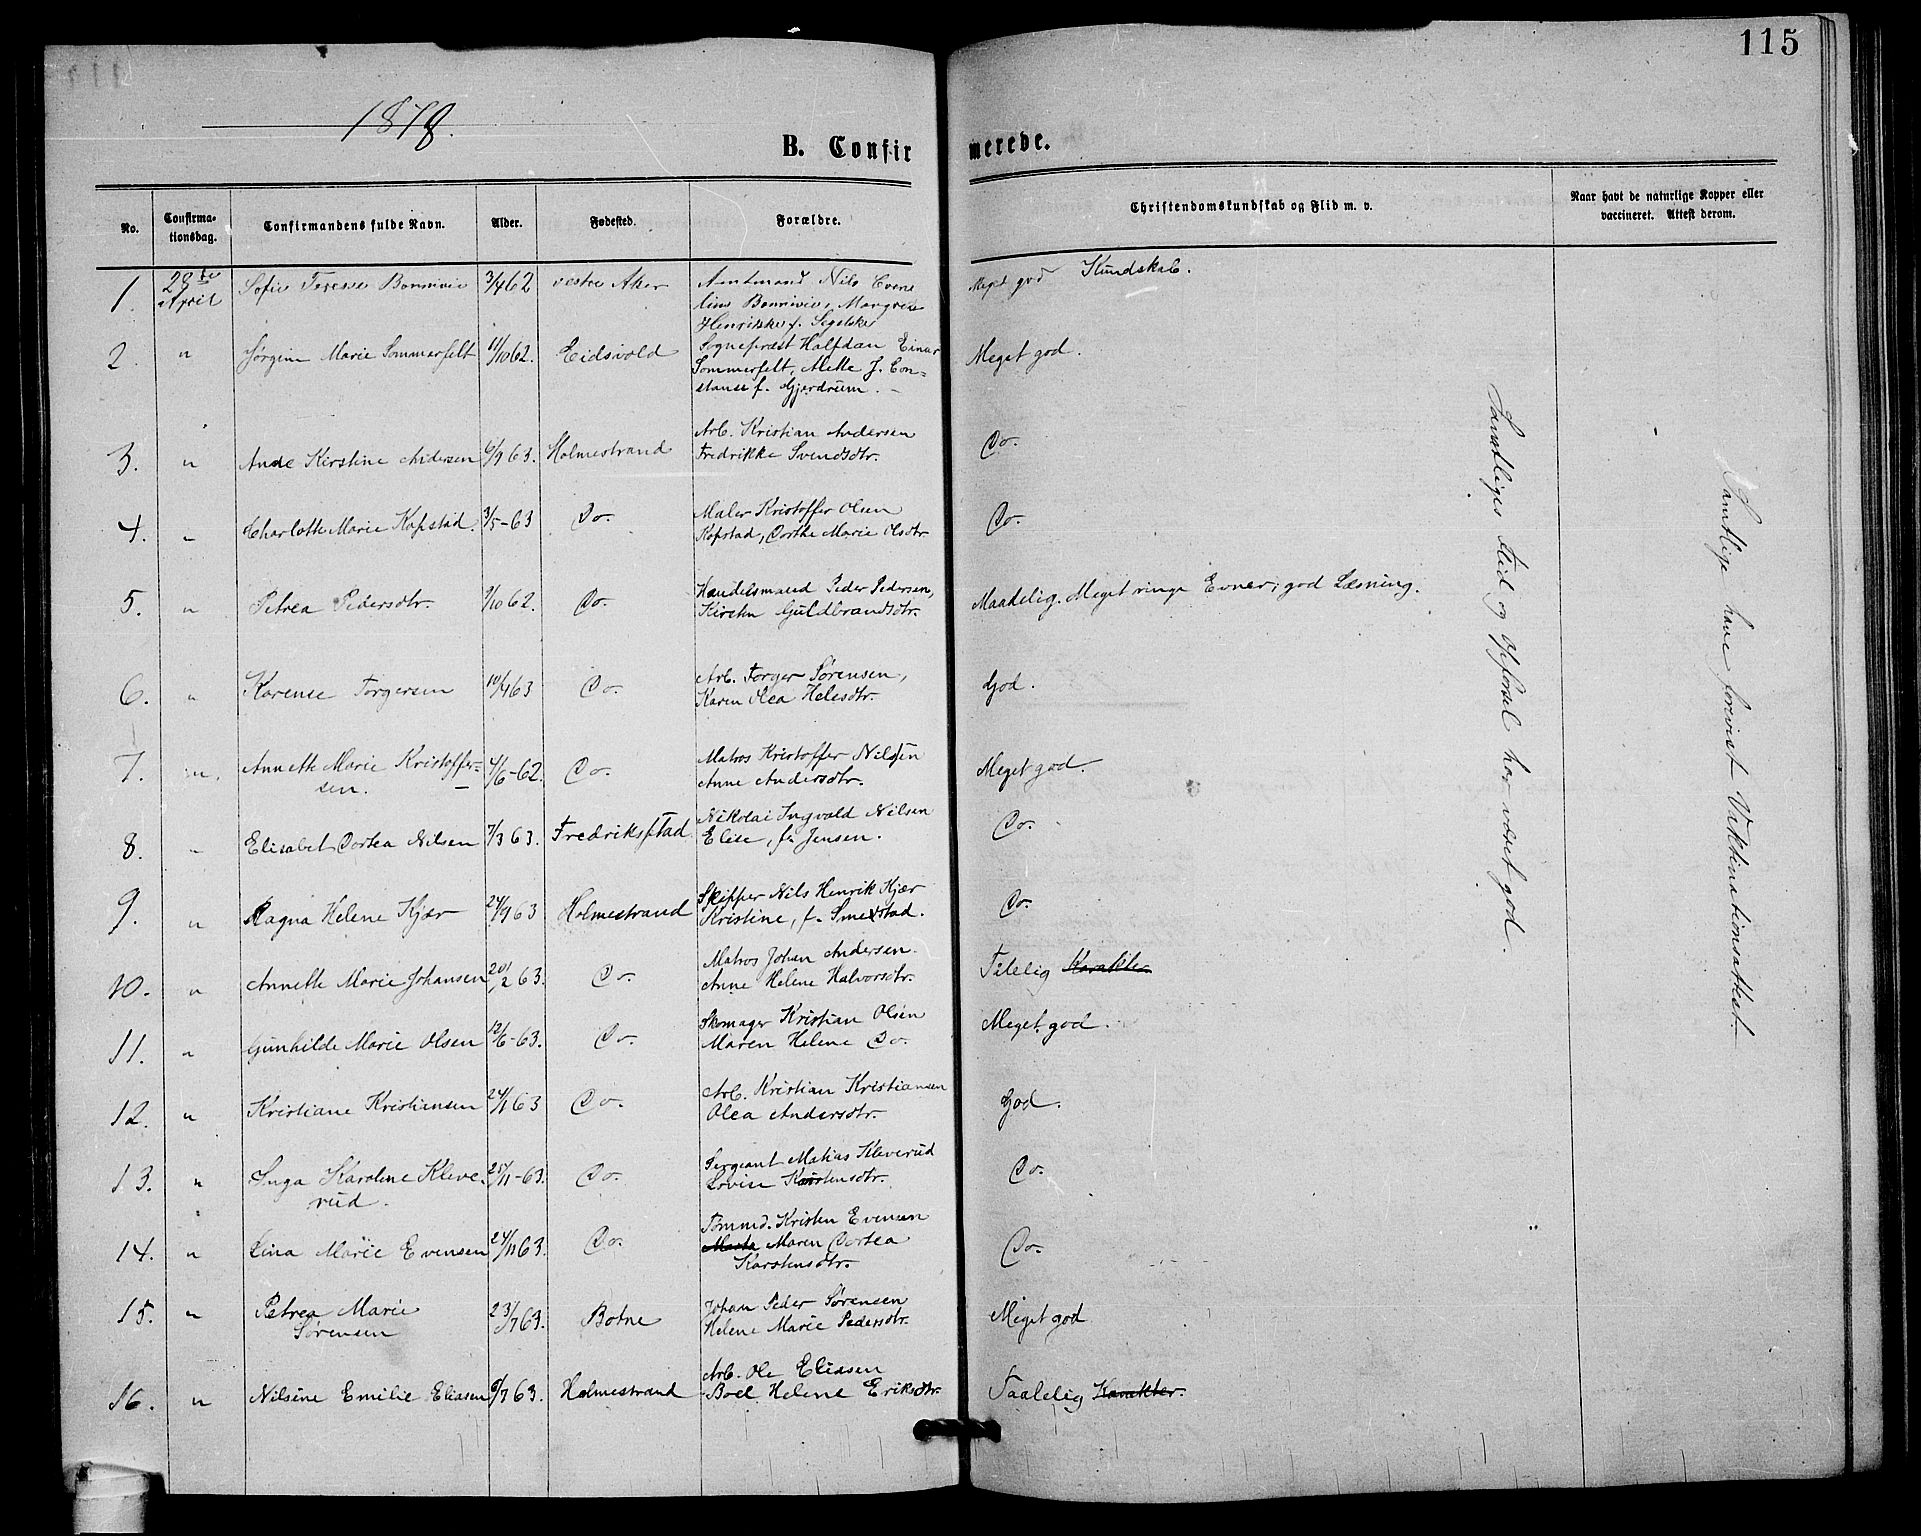 115
1878.
B. Confirmerede.
No.
Confirmationsdag.
Confirmandens fulde Navn.
Alder.
Fødested.
Forældre.
Christendomskundskab og Flid m. v.
Naar havt de naturlige Kopper eller
vaccineret. Attest derom.
1. 28de April Sofie Terese Bonnivie 3/4 62 vestre Aker Amtmand Nils Eve
lius Bonnivie, Margrete
Henrikke f. Segelcke Meget god Kundskab.
2. " Jørgine Marie Sommerfelt 11/10 62. Eidsvold Sognepræst Halfdan Einar
Sommerfelt, Mette J. Con=
stanse f. Gjerdrum. - Meget god.
3. " Ande Kirstine Andersen 6/9 63. Holmestrand Arb. Kristian Andersen
Fredrikke Svendsdtr. Do.
4. " Charlotte Marie Kopstad. 3/5-63 Do. Maler Kristoffer Olsen
Kopstad, Dorthe Marie Olsdtr. Do.
5. " Petrea Pedersdtr. 9/10 62. Do. Handelsmand Peder Pedersen,
Kirsten Guldbrandsdtr. Maadelig. Meget ringe Evner; god Læsning.
6. " Karense Torgersen 10/4 63 Do. Arb. Torger Sørensen,
Karen Olea Helesdtr. God.
7. " Annette Marie Kristoffer-
sen. 4/6-62. Do. Matros Kristoffer Nilsen
Anne Andersdtr. Meget god.
8. " Elisabet Dortea Nilsen 7/3 63. Fredriksstad Nikolai Ingvald Nilsen
Elise, f. Jensen. Do.
9. " Ragna Helene Kjær 24/9 63 Holmestrand Skipper Nils Henrik Kjær
Kristine, f. Smestad. Do.
10. " Annette Marie Johansen 20/2 63. Do. Matros Johan Andersen.
Anne Helene Halvorsdtr. Tålelig Karakter
11. " Gunhilde Marie Olsen 12/6-63. Do. Skomager Kristian Olsen
Maren Helene Do. Meget god.
12. " Kristiane Kristiansen 24/1 63 Do. Arb. Kristian Kristiansen
Olea Andersdtr. God.
13. " Inga Karoline Kleve-
rud. 25/11-63. Do. Sergeant Matias Kleverud
Lovise Karstensdtr. Do.
14. " Lina Marie Evensen 24/11 63. Do. Tømmd. Kristen Evensen
Marta Maren Dortea
Karstensdtr. Do.
15. " Petrea Marie
Sørensen 23/7 63. Botne Johan Peder Sørensen
Helene Marie Pedersdtr. Meget god
16. " Nilsine Emilie Eliasen 6/7 63. Holmestrand Arb. Ole Eliasen
Boel Helene Eriksdtr. Taalelig Karakter.
Samtliges Flid og Opførsel har været god.
Samtlige have forevist Vaktinationsattest.